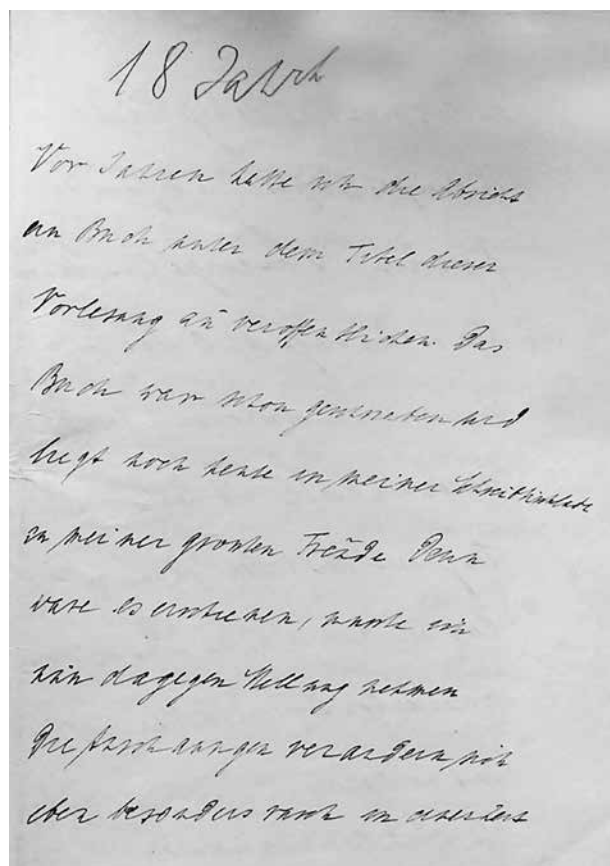 18 Jahrh
Vor Jahren hatte ich die Absicht
ein Buch unter dem Titel dieser
Vorlesung zu veröffentlichen. Das
Buch war schon geschrieben und
liegt noch heute in meiner Schreibtischlade
zu meiner grossten Freude Denn
ware es erschienen, musste ich
nun dagegen Stellung nehmen
Die Anschauungen verandern sich
aber besonders rasch in